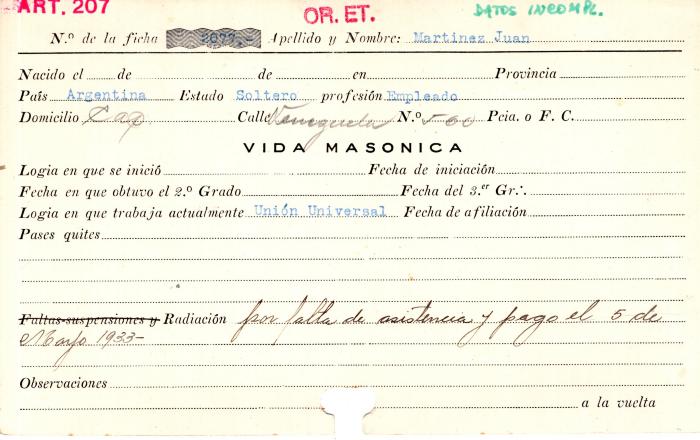 ART. 207
OR. ET.
DATOS INCOMPL.
N.º de la ficha 2077.- Apellido y Nombre: Martinez Juan
Nacido el de de en Provincia
País Argentina Estado Soltero profesión Empleado
Domicilio Cap Calle Venezuela N.º 500 Pcia. o F. C.
VIDA MASONICA
Logia en que se inició Fecha de iniciación
Fecha en que obtuvo el 2.º Grado Fecha del 3.er Gr∴
Logia en que trabaja actualmente Unión Universal Fecha de afiliación
Pases quites
Faltas-suspensiones y Radiación por falta de asistencia y pago el 5 de
Mayo 1933-
Observaciones
a la vuelta